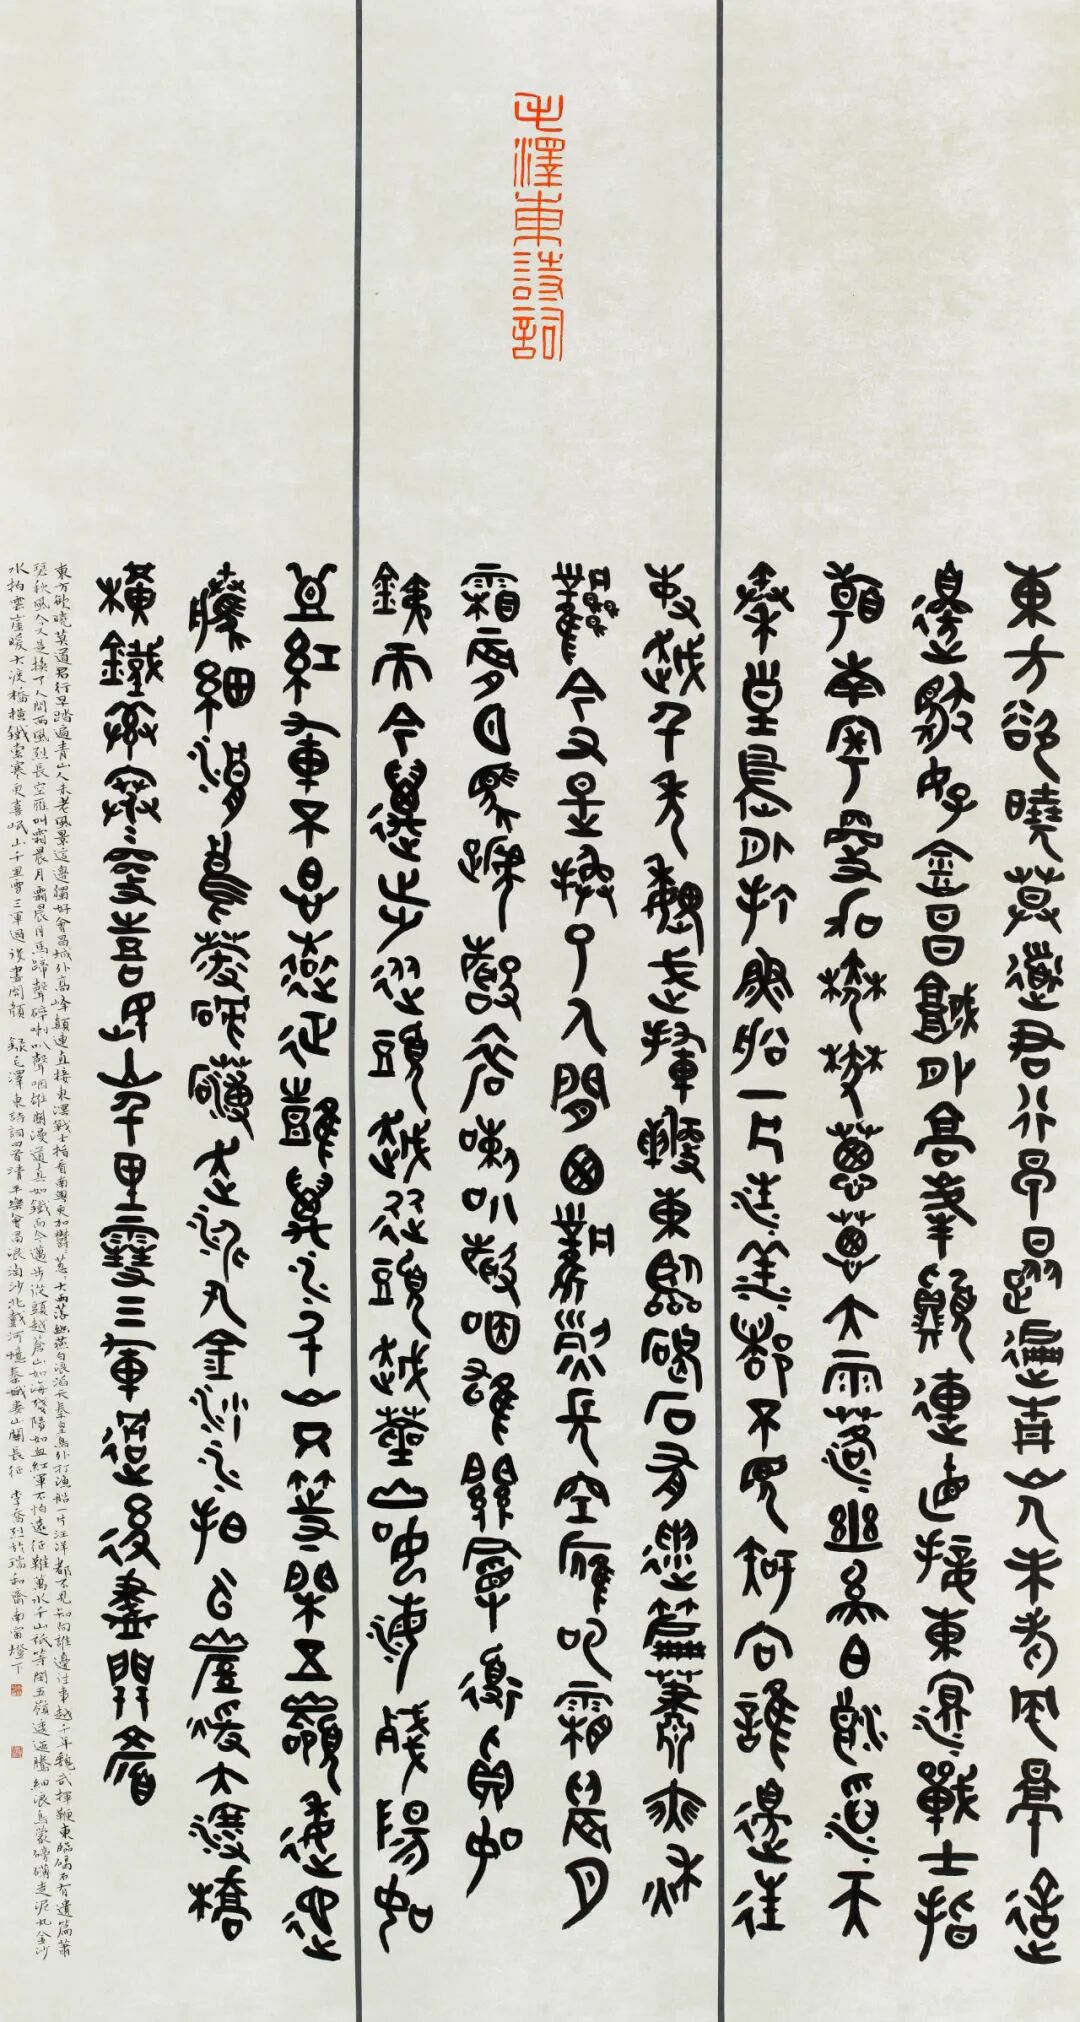 毛澤東詩詞
東方欲曉莫道君行早踏遍青山人未老風景這
邊獨好會昌城外高峰顛連直接東溟戰士指
看南粵更加鬱鬱蔥蔥大雨落幽燕白浪滔天
秦皇島外打漁船一片汪洋都不見知向誰邊往
事越千年魏武揮鞭東臨碣石有遺篇蕭瑟秋
風今又是換了人間西風烈長空雁叫霜晨月
霜晨月馬蹄聲碎喇叭聲咽雄關漫道真如
鐵而今邁步從頭越從頭越蒼山如海殘陽如
血紅軍不怕遠征難萬水千山只等閒五嶺逶迤
騰細浪烏蒙磅礴走泥丸金沙水拍雲崖暖大渡橋
橫鐵索寒更喜岷山千里雪三軍過後盡開顏
東方欲曉莫道君行早踏遍青山人未老風景這邊獨好會昌城外高峰顛連直接東溟戰士指看南粵更加鬱蔥大雨落幽燕白浪滔天秦皇島外打漁船一片汪洋都不見知向誰邊往事越千年魏武揮鞭東臨碣石有遺篇蕭
瑟秋風今又是換了人間西風烈長空雁叫霜晨月霜晨月馬蹄聲碎喇叭聲咽雄關漫道真如鐵而今邁步從頭越蒼山如海殘陽如血紅軍不怕遠征難萬水千山祇等閒五嶺逶迤騰細浪烏蒙磅礴走泥丸金沙
水拍雲崖暖大渡橋橫鐵索寒更喜岷山千里雪三軍過後盡開顏 錄毛澤東詩詞四首清平樂會昌浪淘沙北戴河憶秦娥婁山關長征 李奮烈於瑞和齋南窗燈下